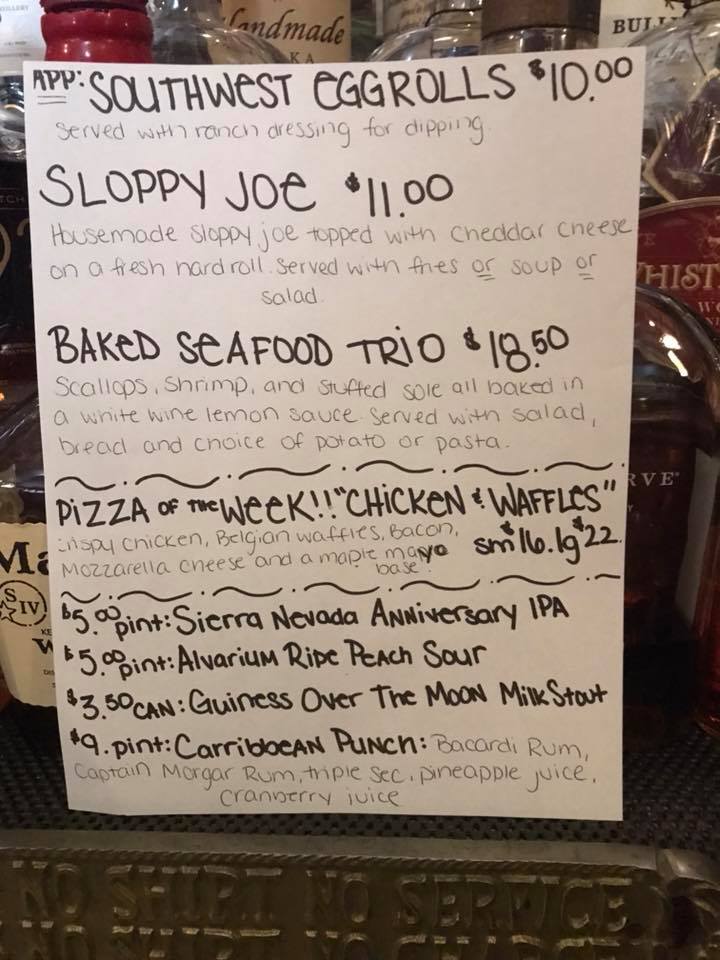 Handmade
KA
BULL
APP: SOUTHWEST EGGROLLS $10.00
Served with ranch dressing for dipping.
SLOPPY JOE $11.00
Housemade Sloppy joe topped with cheddar cheese
on a fresh hard roll. Served with fries or soup or
salad.
BAKED SEAFOOD TRIO $18.50
Scallops, Shrimp, and stuffed sole all baked in
a white wine lemon sauce. Served with salad,
bread and choice of potato or pasta.
PIZZA OF THE WEEK!! "CHICKEN & WAFFLES"
Crispy chicken, Belgian waffles, Bacon,
Mozzarella cheese and a maple mayo
base!
sm $16. lg $22.
$5.00 pint: Sierra Nevada Anniversary IPA
$5.00 pint: Alvarium Ripe Peach Sour
$3.50 CAN: Guiness Over The Moon Milk Stout
$9. pint: Carribbean Punch: Bacardi Rum,
Captain Morgan Rum, triple sec, pineapple juice,
cranberry juice
HIST
RVE
Ma
SIV
NO SHIRT NO SERVICE